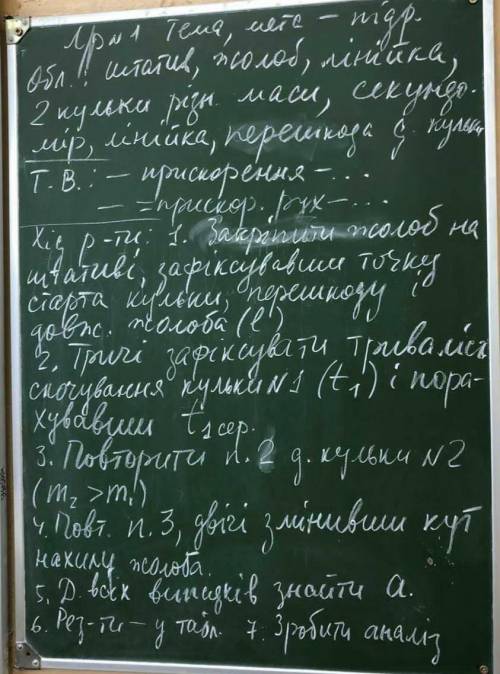 Лр №1 Тема, мета – підр.
Обл.: штатив, жолоб, лінійка,
2 кульки різн. маси, секундо-
мір, лінійка, перешкода д. кульки
Т.В.: – прискорення – ...
– = прискор. рух – ...
Хід р-ти: 1. Закріпити жолоб на
штативі, зафіксувавши точку
старта кульки, перешкоду і
довж. жолоба (l)
2. Тричі зафіксувати тривалість
скочування кульки №1 (t₁) і пора-
хувавши t₁сер.
3. Повторити п. 2 д. кульки №2
(m₂ > m₁)
4. Повт. п. 3, двічі змінивши кут
нахилу жолоба.
5. Д. всіх випадків знайти a.
6. Рез-ти – у табл. 7. Зробити аналіз